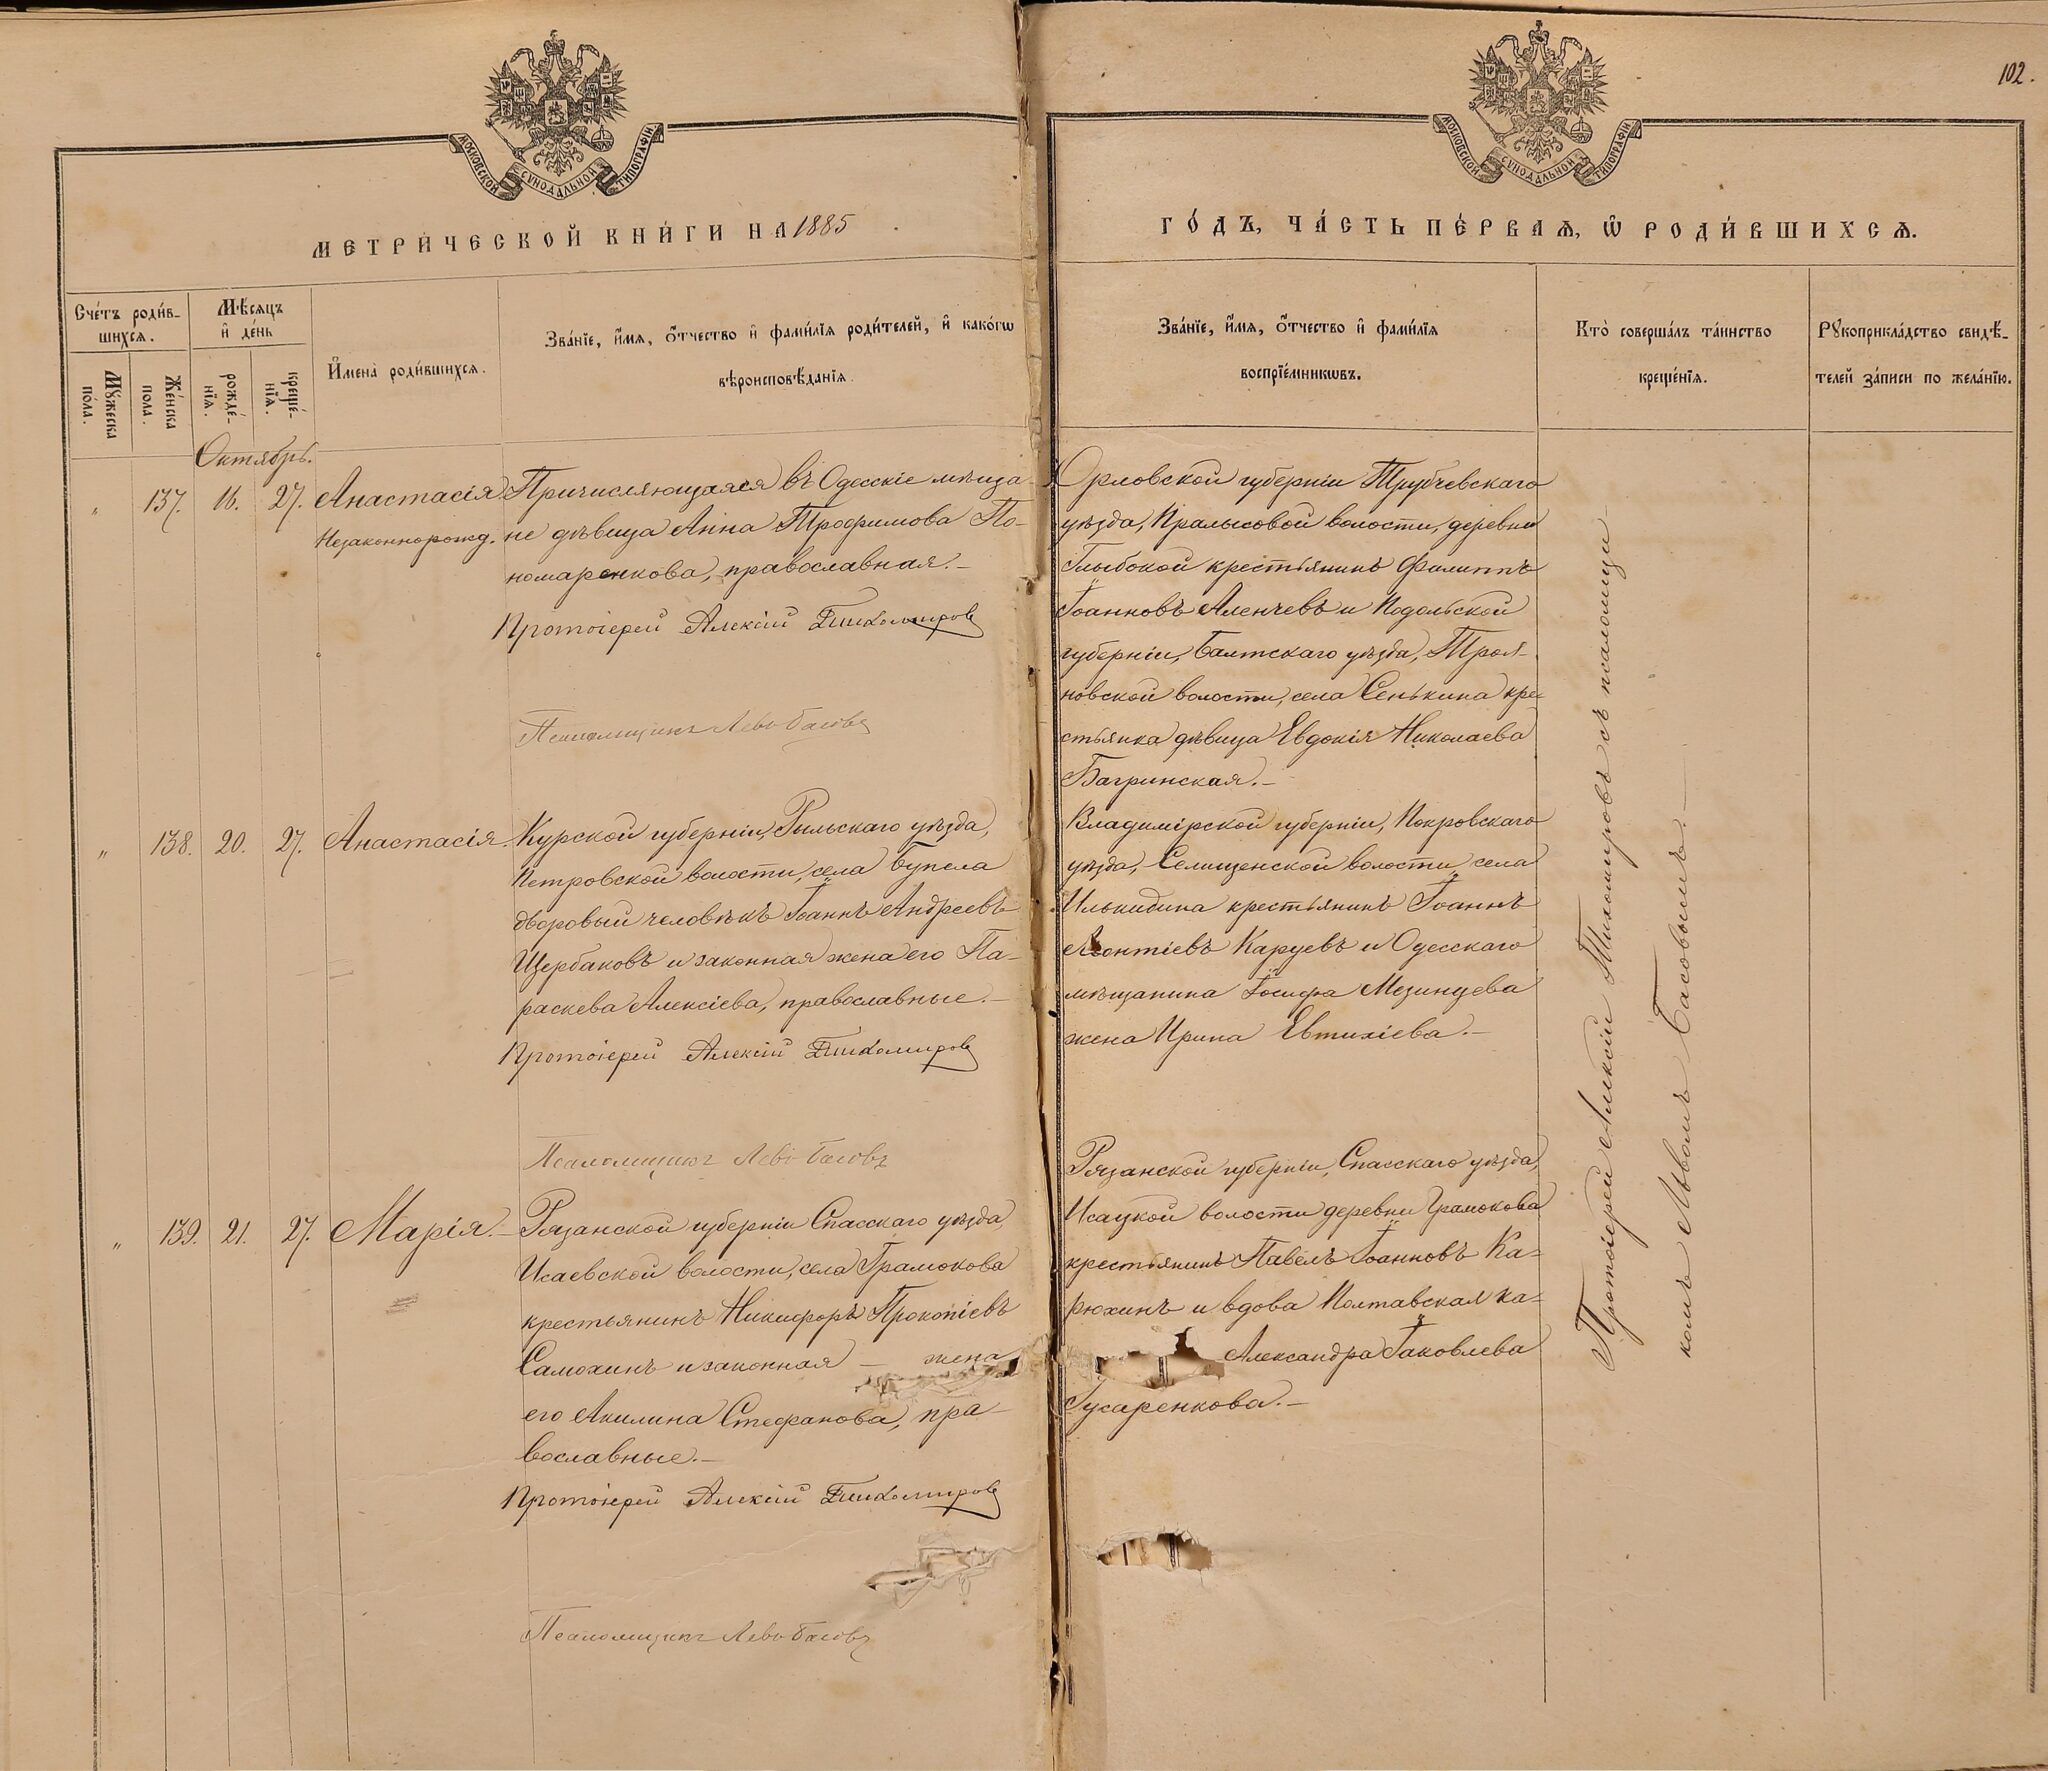 102.
МОСКОВСКОЙ СѴНОДАЛЬНОЙ ТИПОГРАФІИ
МОСКОВСКОЙ СѴНОДАЛЬНОЙ ТИПОГРАФІИ
МЕТРИ́ЧЕСКОЙ КНИ́ГИ НА 1885
ГО́ДЪ, ЧА́СТЬ ПЕ́РВАѦ, Ѡ҆ РОДИ́ВШИХСѦ.
Сче́тъ роди́в-
шихсѧ.
Мꙋ́жеска
пола.
Же́нска
пола.
Мѣ́сѧцъ
и҆ де́нь
рожде́-
нїѧ.
креще́-
нїѧ.
И҆мена̀ роди́вшихсѧ.
Зва́нїе, и҆́мѧ, ѻ҆́тчество и҆ фами́лїѧ роди́телей, и҆ како́гѡ
вѣроисповѣ́данїѧ.
Зва́нїе, и҆́мѧ, ѻ҆́тчество и҆ фами́лїѧ
воспрїе́мникѡвъ.
Кто̀ соверша́лъ та́инство
креще́нїѧ.
Рꙋкоприкла́дство свидѣ́-
телей за́писи по жела́нїю.
Октябрь.
„ 137. 16. 27. Анастасія
Незаконнорожд.
Причисляющаяся въ Одесскіе мѣща-
не дѣвица Анна Трофимова По-
номаренкова, православная.–
Протоіерей Алексій Тихомировъ
Псаломщикъ Левъ Басовъ
Орловской губерніи Трубчевскаго
уѣзда, волости, деревни
Глыбокой крестьянинъ Филиппъ
Іоанновъ Аленчевъ и Подольской
губерніи, Балтскаго уѣзда, Троя-
новской волости, села Сенькина кре-
стьянка дѣвица Евдокія Николаева
Багринская.–
„ 138. 20. 27. Анастасія.
Курской губерніи, Рыльскаго уѣзда,
Петровской волости, села
дворовый человѣкъ Іоаннъ Андреевъ
Щербаковъ и законная жена его Па-
раскева Алексіева, православные.–
Протоіерей Алексій Тихомировъ
Псаломщикъ Левъ Басовъ
Владимірской губерніи, Покровскаго
уѣзда, Селищенской волости, села
Илькидина крестьянинъ Іоаннъ
Леонтіевъ Каруевъ и Одесскаго
мѣщанина Іосифа Мезинцева
жена Ирина Евтихіева.–
„ 139. 21. 27. Марія.–
Рязанской губерніи Спасскаго уѣзда,
Исаевской волости, села Грамокова
крестьянинъ Никифоръ Прокопіевъ
Самохинъ и законная – жена
его Акилина Стефанова, пра-
вославные.–
Протоіерей Алексій Тихомировъ
Псаломщикъ Левъ Басовъ
Рязанской губерніи, Спасскаго уѣзда,
Исацкой волости деревни Грамокова
крестьянинъ Павелъ Іоанновъ Ка-
рюхинъ и вдова Полтавская ка-
Александра Іаковлева
Гусаренкова.–
Протоіерей Алексій Тихомировъ съ псаломщи-
комъ Львомъ Басовымъ.–